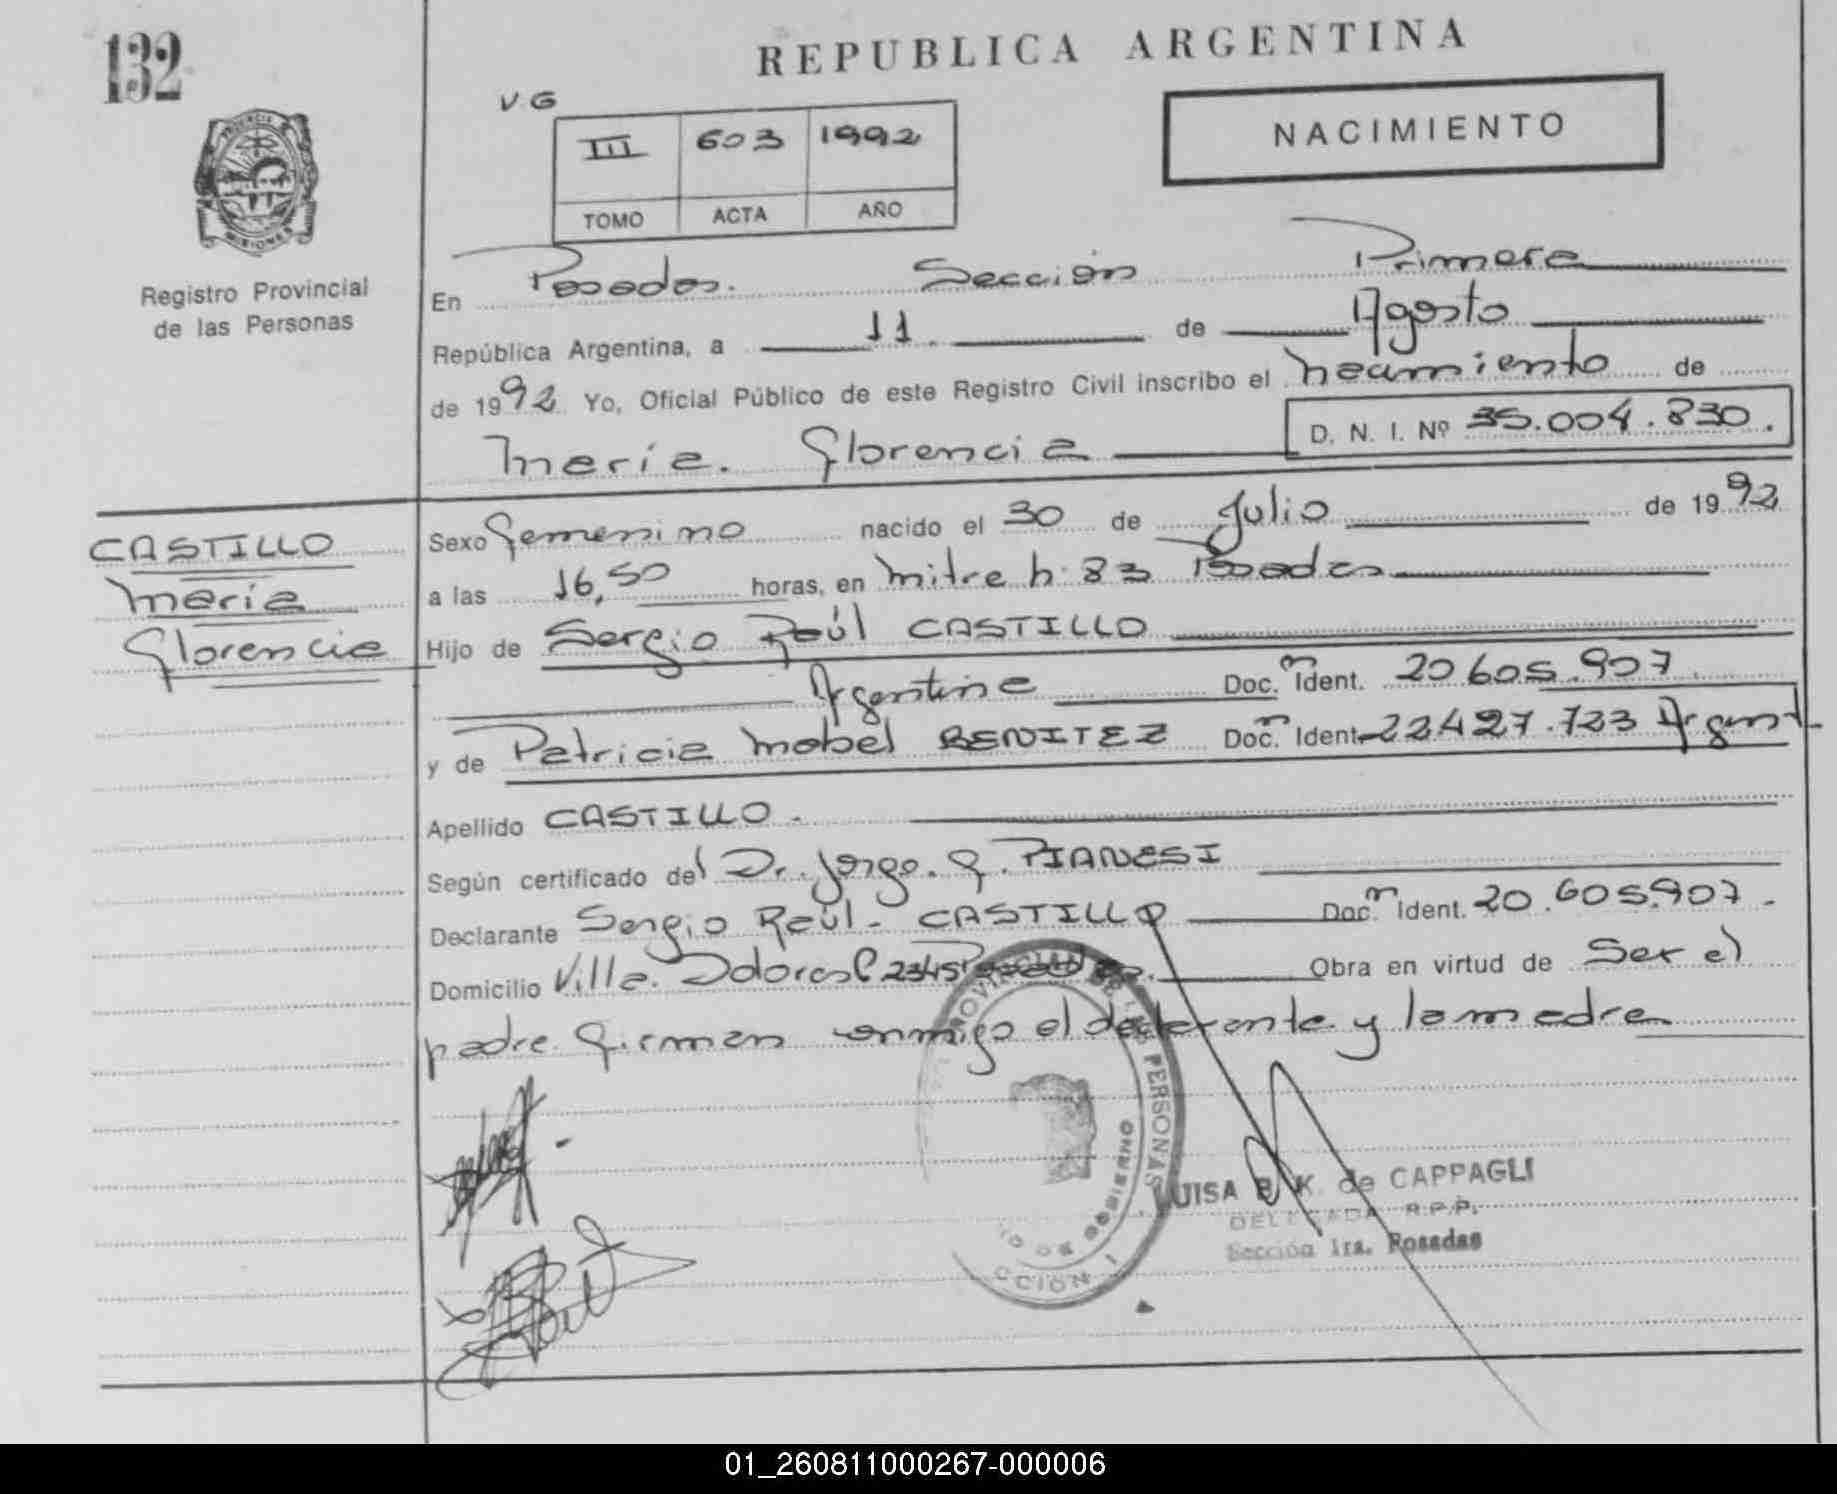 132
REPUBLICA ARGENTINA
V.G
III 603 1992
TOMO ACTA AÑO
NACIMIENTO
PROVINCIA DE
MISIONES
Registro Provincial
de las Personas
En Posadas. Sección Primera
República Argentina, a 11. de Agosto
de 1992 Yo, Oficial Público de este Registro Civil inscribo el nacimiento de
D. N. I. Nº 35.004.830.
Maria. Florencia
CASTILLO
Maria
Florencia
Sexo Femenino nacido el 30 de Julio de 1992
a las 16,50 horas, en Mitre h: 83 Posadas
Hijo de Sergio Raúl CASTILLO
Argentina Doc. n Ident. 20.605.907
y de Patricia Mabel BENITEZ Doc. n Ident. 22427.723 Argent
Apellido CASTILLO.
Según certificado del Dr. Jorge. F. PIANESI
Declarante Sergio Raúl. CASTILLO Doc. n Ident. 20.605.907.
Domicilio Villa. Dolores C 2345 Obra en virtud de Ser el
padre. Firman conmigo el declarante y la madre
PERSONAS
GOBIERNO
LUISA B. K. de CAPPAGLI
DELEGADA R.P.P.
Sección 1ra. Posadas
01_260811000267-000006